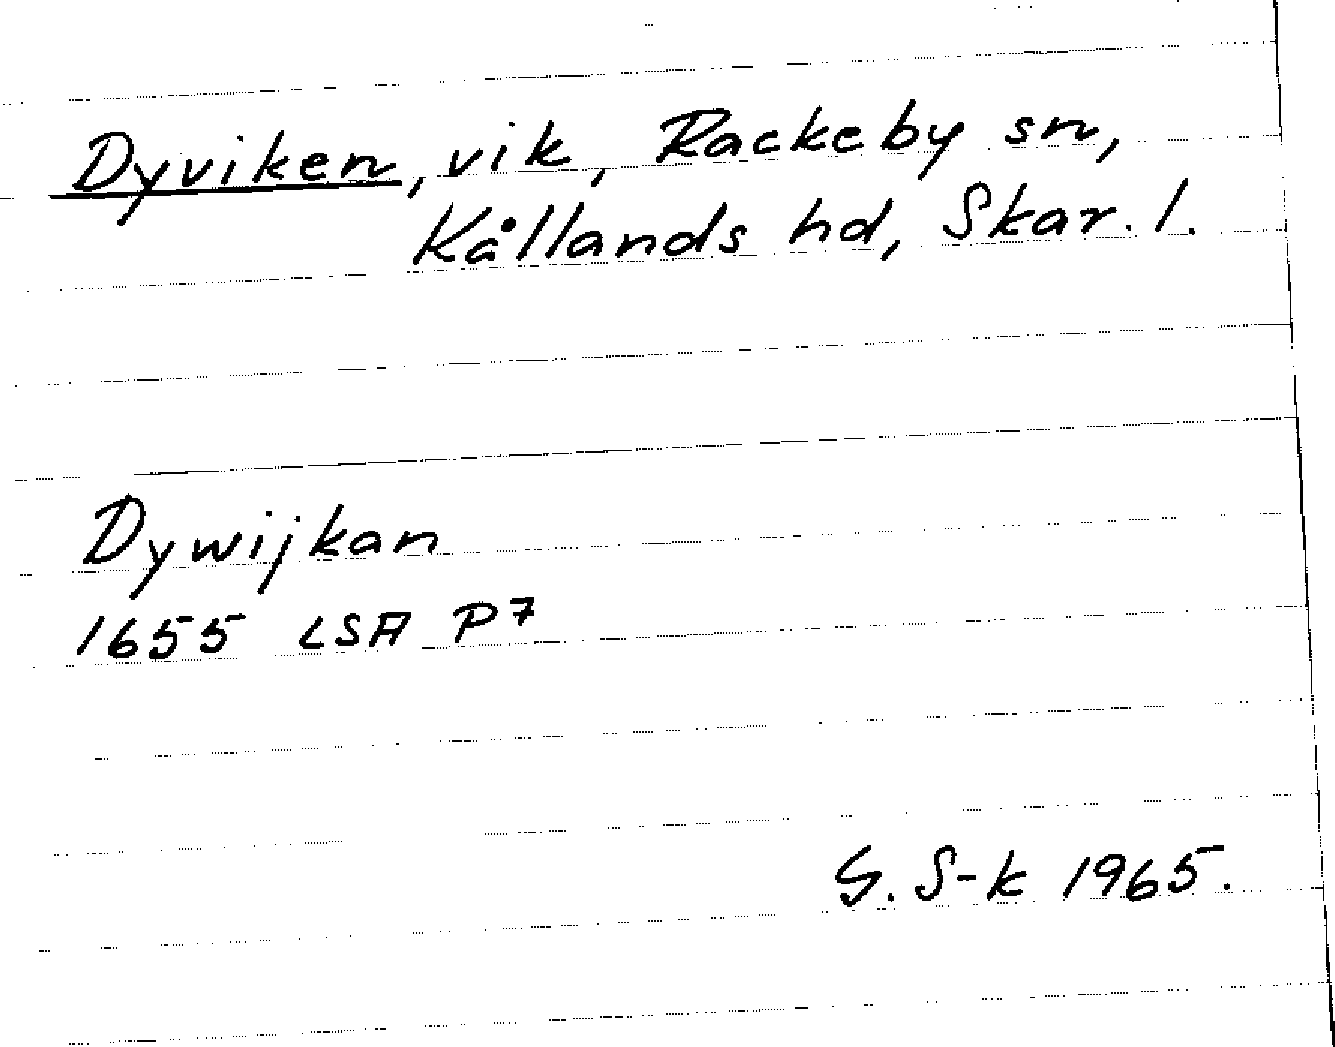 Dyviken, vik, Rackeby sn,
Kållands hd, Skar. l.
Dywijkan
1655 LSA P7
G. S-k 1965.